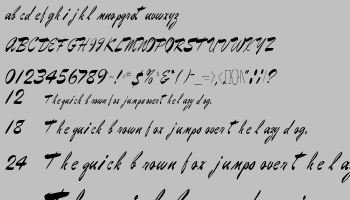 ab cd ef gh i j kl mnopqrst uvwxyz
ABCDEFGHIJKLMNOPQRSTUVWXYZ
0123456789
12 The quick brown fox jumps over the lazy dog.
18 The quick brown fox jumps over the lazy dog.
24 The quick brown fox jumps over the la